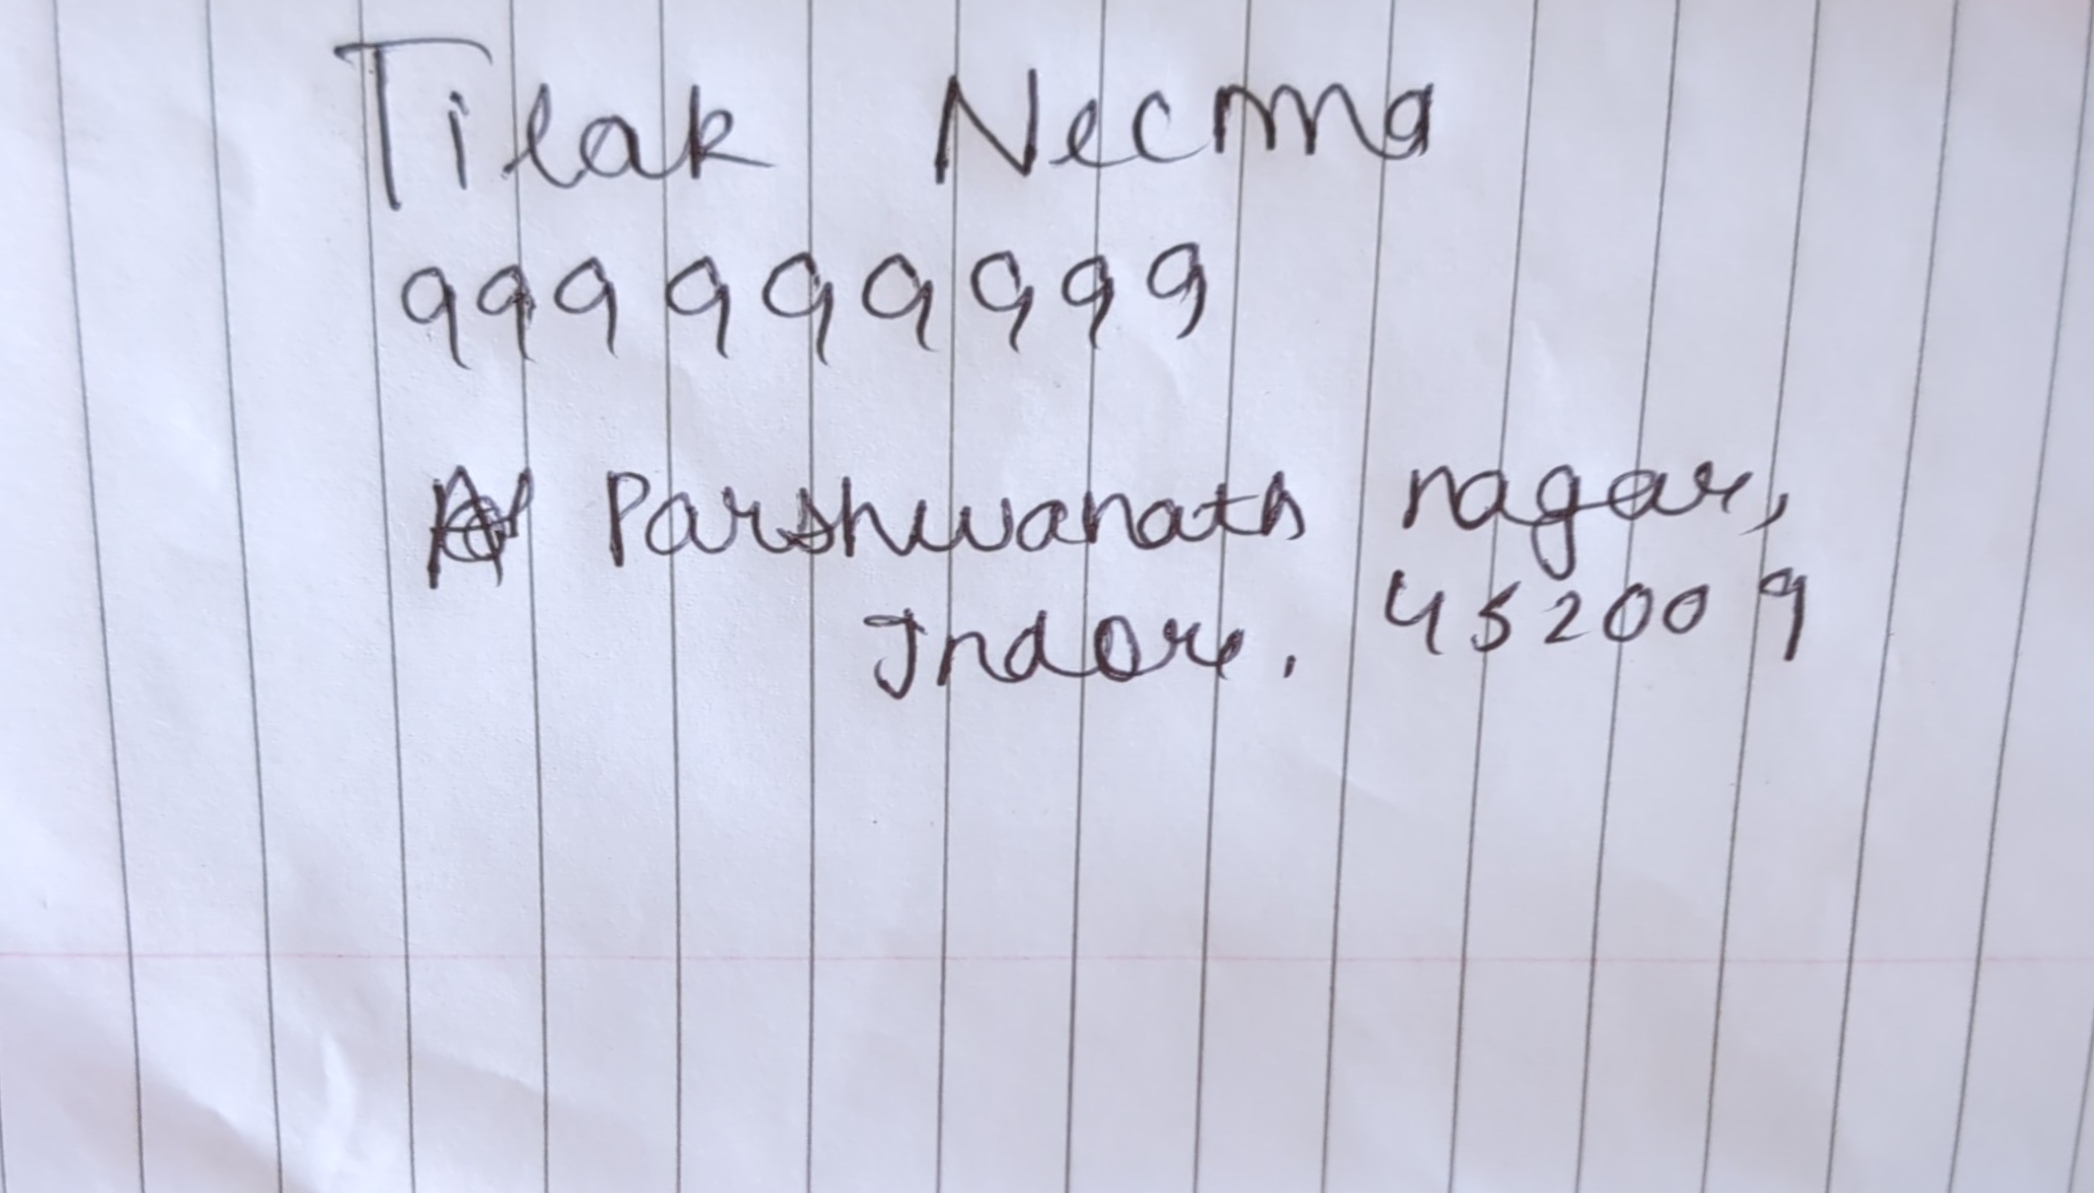 Tilak Neema
999999999
Parshwanath nagar,
Indore. 452009